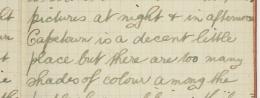 pictures at night & in afternoon
Capetown is a decent little
place but there are too many
shades of colour among the